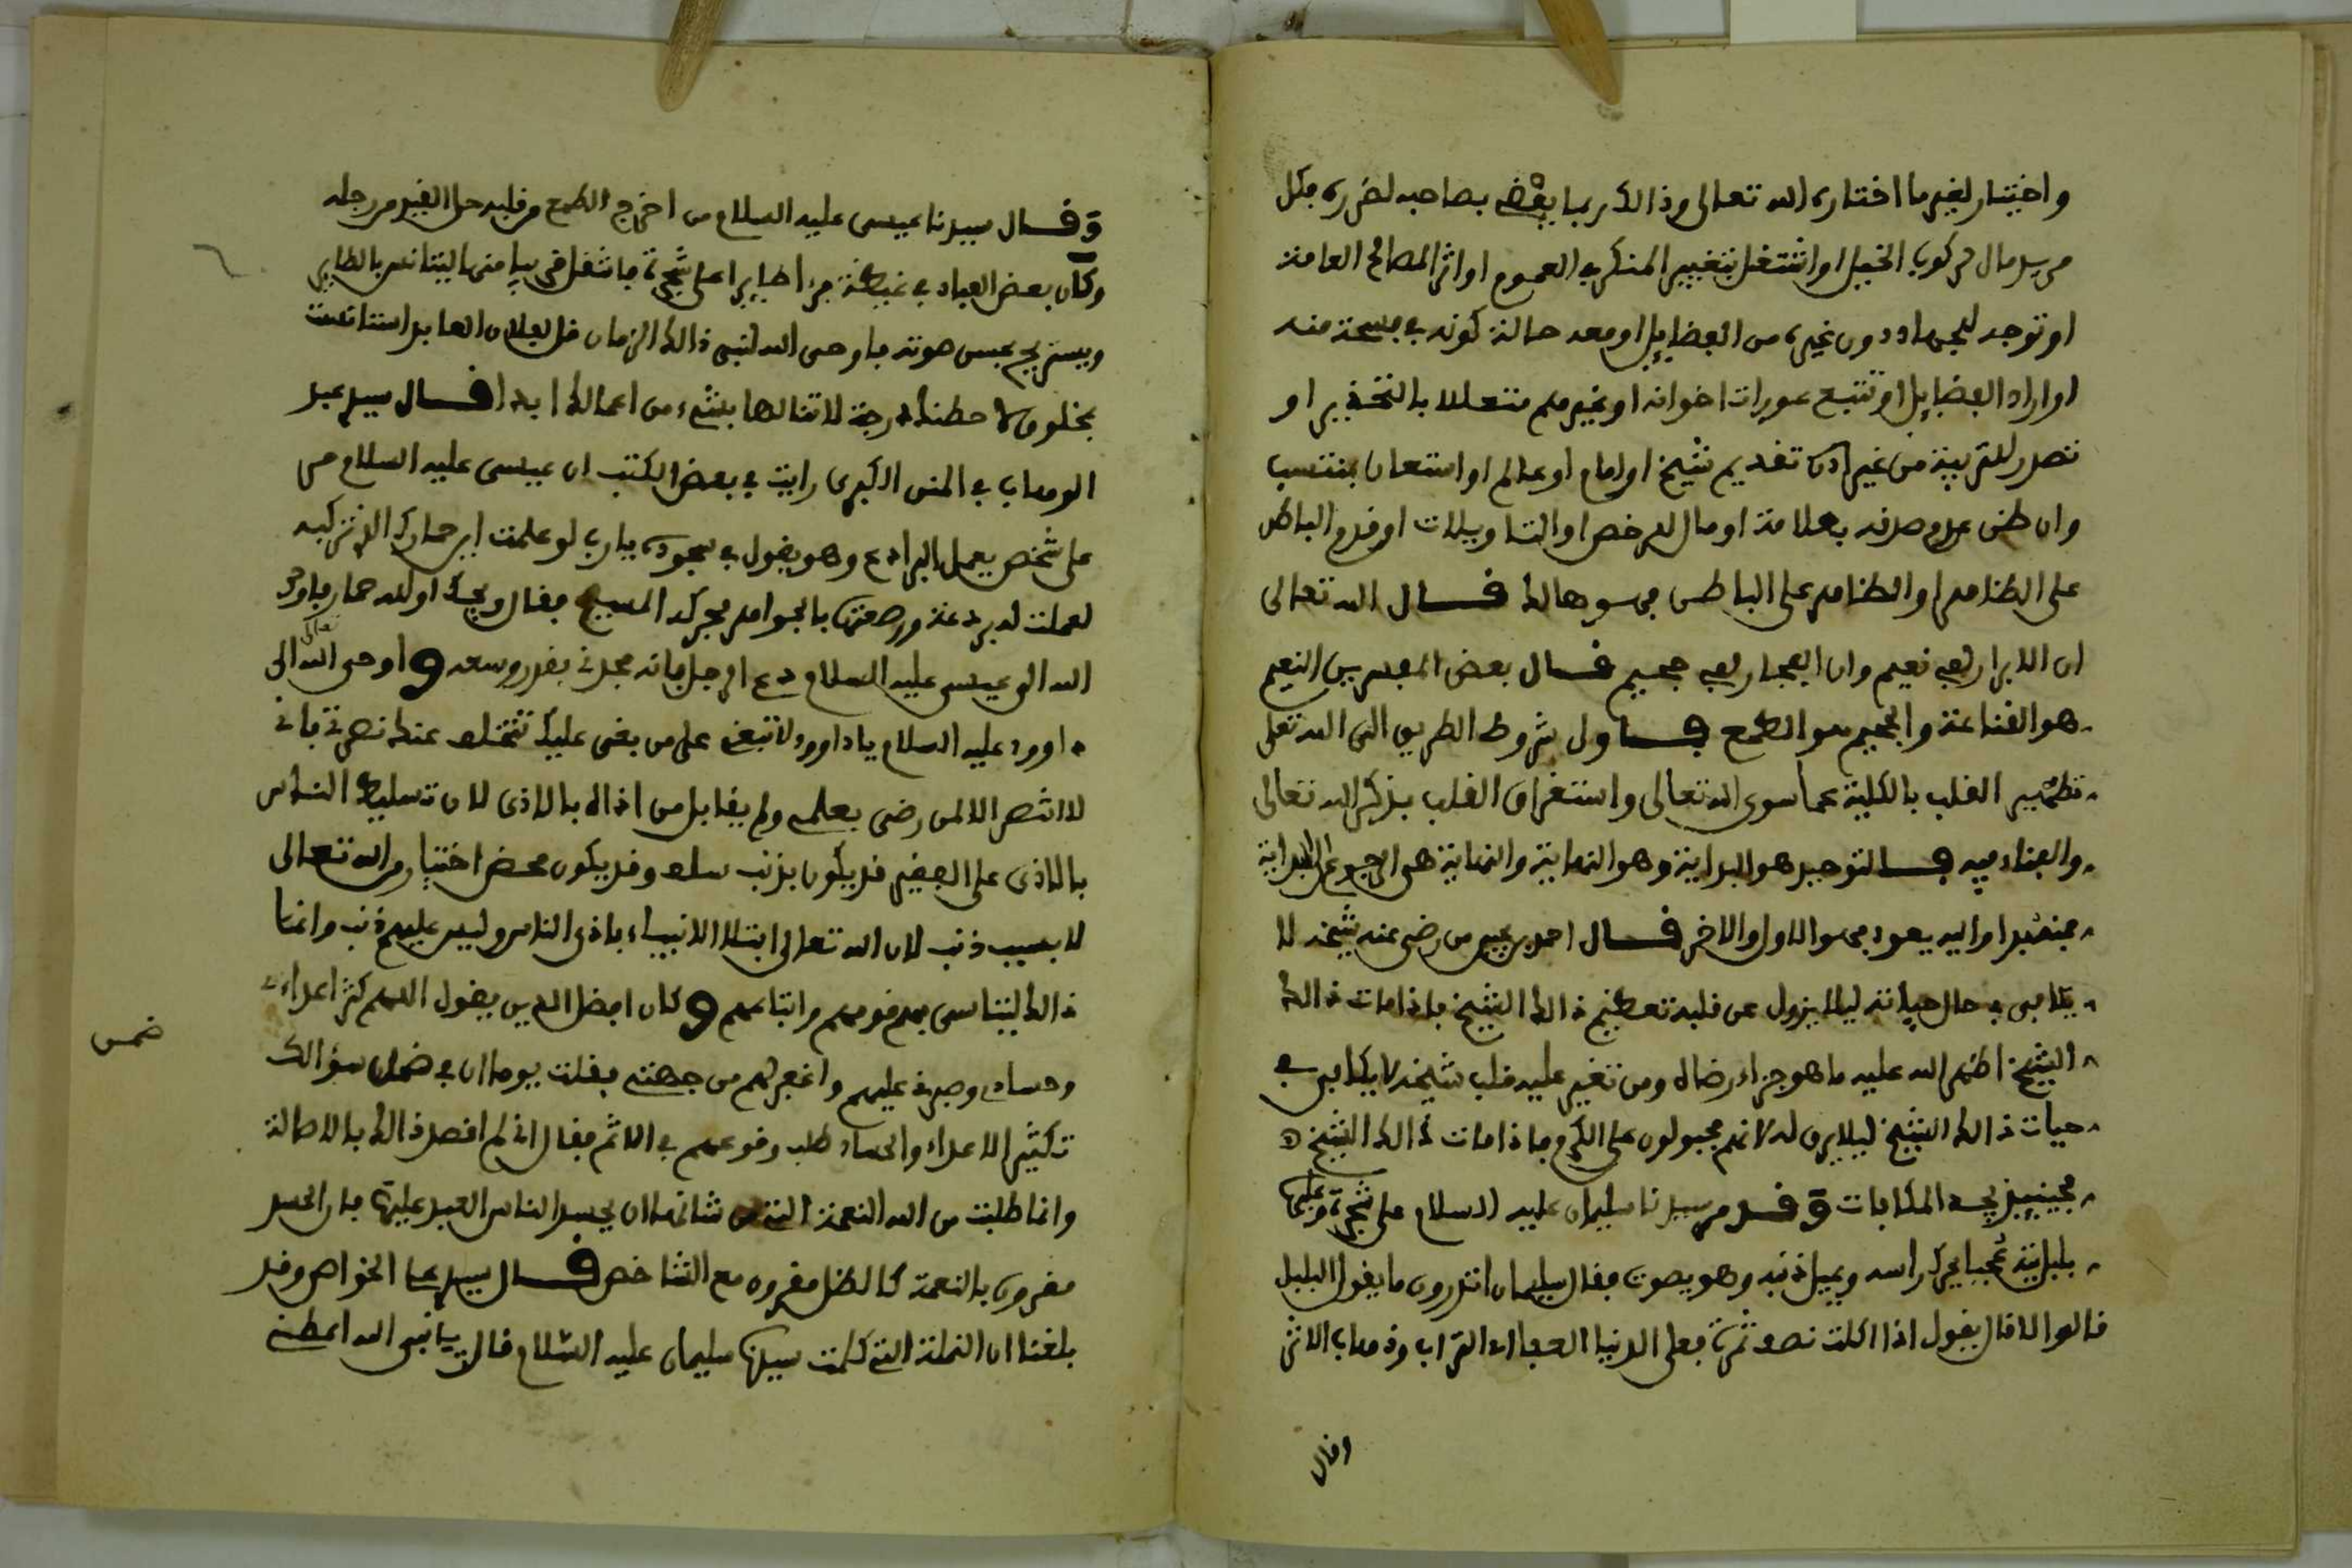 واختيار لغير ما اختاره الله تعالى وذالك ربما يفضي بصاحبه لضرره بكل
من يد مال لركوب الخيل او اشتغل بتغيير المنكر في العموم او اثر المصالح العامة
او توجه للجهاد دون غيره من الفضايل او معه حالة كونه في فسحة منه
او اراد الفضايل او تتبع عورات اخوانه او غيرهم متعللا بالتحذير او
تصدر للتربية من غير اذن تقديم شيخ او امام او عالم او استعان بمنتسب
وان ظن عدم صدقه بعلامة او مال للرخص او التاويلات او قدم الباطن
على الظاهر او الظاهر على الباطن فهو هالك قال الله تعالى
ان الابرار لفي نعيم وان الفجار لفي جحيم قال بعض المفسرين النعيم
هو القناعة والجحيم هو الطمع فاول شروط الطريق الى الله تعلى
تطهير القلب بالكلية عما سوى الله تعالى واستغراق القلب بذكر الله تعالى
والفناء فيه فالتوحيد هو البداية وهو النهاية والنهاية هى الرجوع الى البداية
فمنه بدا واليه يعود فهو الاول والاخر قال احمد بن رضى عنه شيخه لا
يكافى في حال حياته ليلا يزول عن قلبه تعظيم ذالك الشيخ فاذا مات ذالك
الشيخ اظهر الله عليه ما هو جزاء رضاه ومن تغير عليه قلب شيخه لا يكافى في
حيات ذالك الشيخ ليلا يرق له لانهم مجبولون على الكرم فاذا مات ذالك الشيخ
فحينيذ يجد المكافات وقد مر سيدنا سليمان عليه السلام على شجرة وعليها
بلبل يحرك راسه ويميل ذنبه وهو يصوت فقال سليمان اتدرون ما يقول البلبل
قالوا لا قال يقول اذا اكلت نصف ثمرة فعلى الدنيا العفا اى التراب وذهاب الاثر
وقال
وقال سيدنا عيسى عليه السلام من اخرج الطمع من قلبه حل القيد من رجله
وكان بعض العباد في غيطة فراى طايرا على شجرة فاشغل قريبا منها ليتانس بالطاير
ويستريح بحسن صوته فاوحى الله لنبى ذالك الزمان قل لفلان العابد استانست
بمخلوق لاحطنك درجة لا تنالها بشيء من اعمالك ابدا قال سيدى عبد
الوهاب في المنن الكبرى رايت في بعض الكتب ان عيسى عليه السلام مر
على شخص يعمل البرادع وهو يقول في سجوده يارب لو علمت اين حمارك الذي تركبه
لعملت له بردعة ورصعتها بالجواهر فحركه المسيح فقال ويحك اولله حمار فاوحى
الله الى عيسى عليه السلام دع الرجل فانه مجدنى بقدر وسعه واوحى الله تعالى الى
داوود عليه السلام يا داوود لا تبغي على من بغى عليك تتخلف عنك نصرتى فانى
لا انتصر الا لمن رضى بعلمى ولم يقابل من اذاه بالاذى لان تسليط الناس
بالاذى على الفقير قد يكون بذنب سلف وقد يكون محض اختيار من الله تعالى
لا بسبب ذنب لان الله تعالى ابتلا الانبياء باذى الناس وليس عليهم ذنب وانما
ذالك ليتاسى بهم قومهم واتباعهم وكان افضل الدين يقول اللهم كثر اعداءى
وحسادى وصبرنى عليهم واغفر لهم من جهتى فقلت يوما ان في ضمن سؤالك
ضمن
تكثير الاعداء والحساد طلب وقوعهم في الاثم فقال انى لم اقصد ذالك بالاصالة
وانما طلبت من الله النعمة التي من شانها ان يحسد الناس العبد عليها فان الحسد
مقرون بالنعمة كالظل مقرون مع الشاخص قال سيدى على الخواص وقد
بلغنا ان النملة التي كلمت سيدنا سليمان عليه السلام قالت يا نبى الله اعطنى